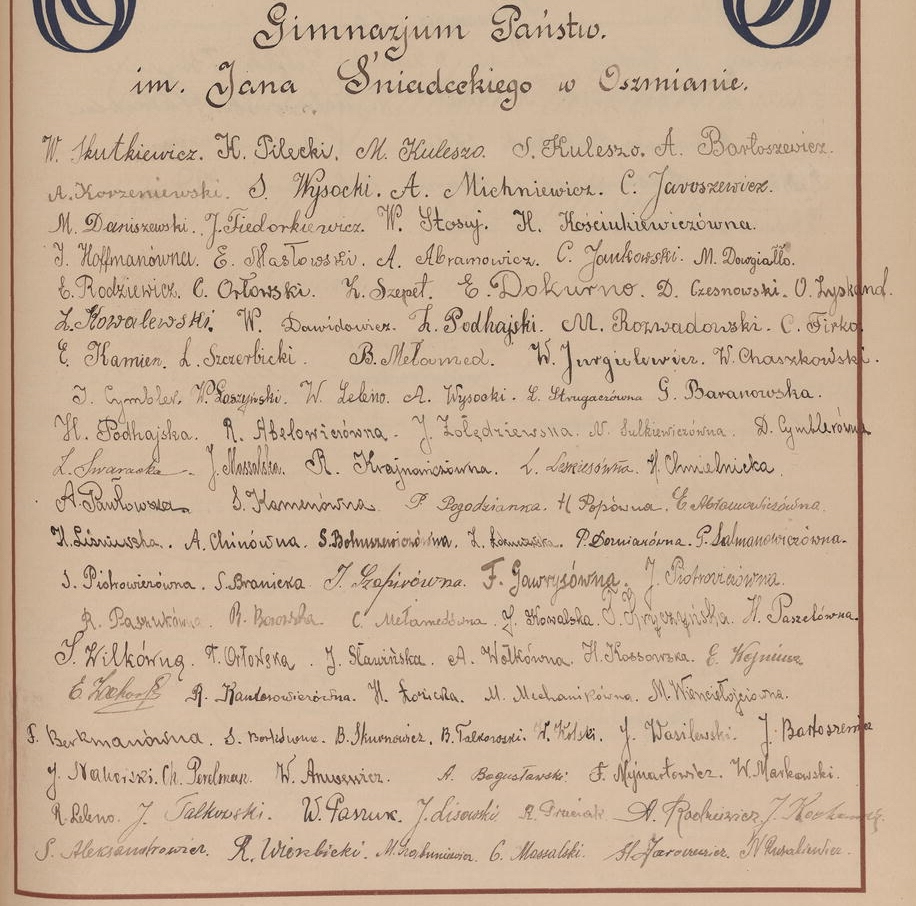 Gimnazjum Państw.
im. Jana Śniadeckiego w Oszmianie.
W. Skutkiewicz. H. Pilecki. M. Kuleszo. S. Kuleszo. A. Bartoszewicz.
A. Korzeniewski. S. Wysocki. A. Michniewicz. C. Jaroszewicz.
M. Daniszewski. J. Fiedorkiewicz. W. Stosuj. H. Kościukiewiczówna.
J. Hoffmanówna. E. Masłowski. A. Abramowicz. C. Jankowski. M. Dowgiałło.
E. Rodziewicz. C. Orłowski. Z. Szepet. E. Dokurno. D. Czesnowski. O. Łyskand.
Z. Kowalewski. W. Dawidowicz. Z. Podhajski. M. Rozwadowski. C. Firko.
E. Kamien. L. Szczerbicki. B. Mełamed. W. Jurgielewicz. W. Chaszkowski.
I. Cymbler. W. Łaszyński. W. Leleno. A. Wysocki. L. Strugaczówna G. Baranowska.
H. Podhajska. R. Abelowiczówna. J. Żołędziewska. N. Sulkiewiczówna. D. Cymblerówna
L. Swaracka. J. Massalska. R. Krajnowiczówna. L. H. Chmielnicka.
A. Pawłowska S. Kamenówna. P. Pogodzianka. H. Popówna. E. Abramowiczówna.
A. Chinówna. S. Bohuszewiczówna. P. Dorniakówna. G. Salmanowiczówna.
S. Piotrowiczówna. S. Branicka. I. Szapirówna. F. Gawrysówna. J. Piotrowiczówna.
R. Paszukówna. R. Borowska. C. Mełamedówna. J. Kowalska. O. Kryczyńska. H. Paszelówna.
S. Wilkówna. T. Orłowska. J. Sławińska. A. Wołkówna. H. Kossowska. E. Wojnicz
R. Kantorowiczówna. H. Łozicka. M. Mechanikówna. M.
F. Berkmanówna. S. B. Skurnowicz. B. Talkowski. W. Kolski. J. Wasilewski. J. Bartoszewicz
J. Nahorski. Ch. Perelman. W. Anusewicz. A. Bogusławski. F. Mejnartowicz. W. Markowski.
R. Leleno. J. Talkowski. W. Paszuk. J. Lisowski R. A. Radziewicz. J.
S. Aleksandrowicz. R. Wierzbicki. M. G. Massalski. H. Jaroszewicz. N. Rusalkiewicz.